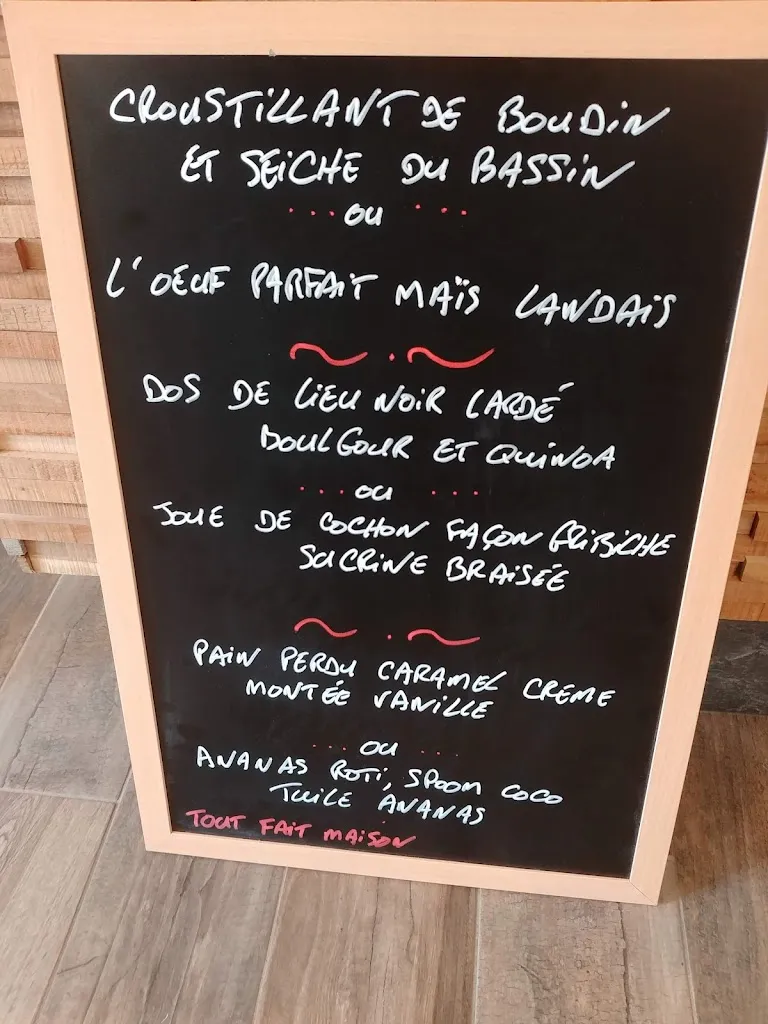 CROUSTILLANT DE BOUDIN
ET SEICHE DU BASSIN
... OU ...
L'OEUF PARFAIT MAÏS LANDAIS
~ . ~
DOS DE LIEU NOIR LARDÉ
BOULGOUR ET QUINOA
... OU ...
JOUE DE COCHON FAÇON GRIBICHE
SUCRINE BRAISÉE
~ . ~
PAIN PERDU CARAMEL CREME
MONTÉE VANILLE
... OU ...
ANANAS ROTI, SPOOM COCO
TUILE ANANAS
TOUT FAIT MAISON